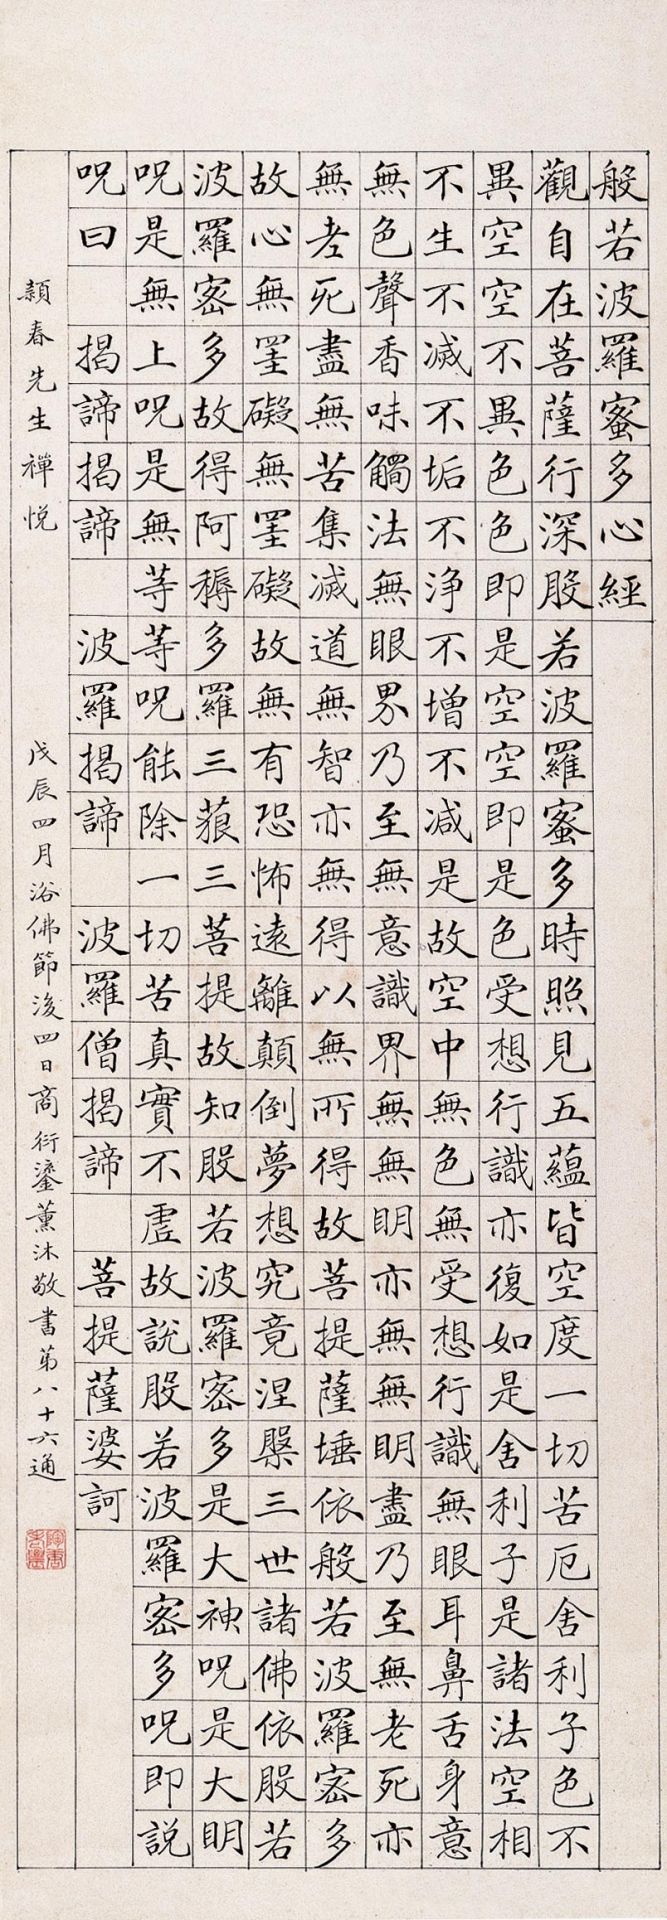 般若波羅蜜多心經
觀自在菩薩行深般若波羅蜜多時照見五蘊皆空度一切苦厄舍利子色不
異空空不異色色即是空空即是色受想行識亦復如是舍利子是諸法空相
不生不滅不垢不淨不增不減是故空中無色無受想行識無眼耳鼻舌身意
無色聲香味觸法無眼界乃至無意識界無無明亦無無明盡乃至無老死亦
無老死盡無苦集滅道無智亦無得以無所得故菩提薩埵依般若波羅密多
故心無罣礙無罣礙故無有恐怖遠離顛倒夢想究竟涅槃三世諸佛依般若
波羅密多故得阿耨多羅三藐三菩提故知般若波羅密多是大神呪是大明
呪是無上呪是無等等呪能除一切苦真實不虛故說般若波羅密多呪即說
呪曰 揭諦揭諦 波羅揭諦 波羅僧揭諦 菩提薩婆訶
穎春先生禪悅
戊辰四月浴佛節後四日商衍鎏薰沐敬書第八十六通